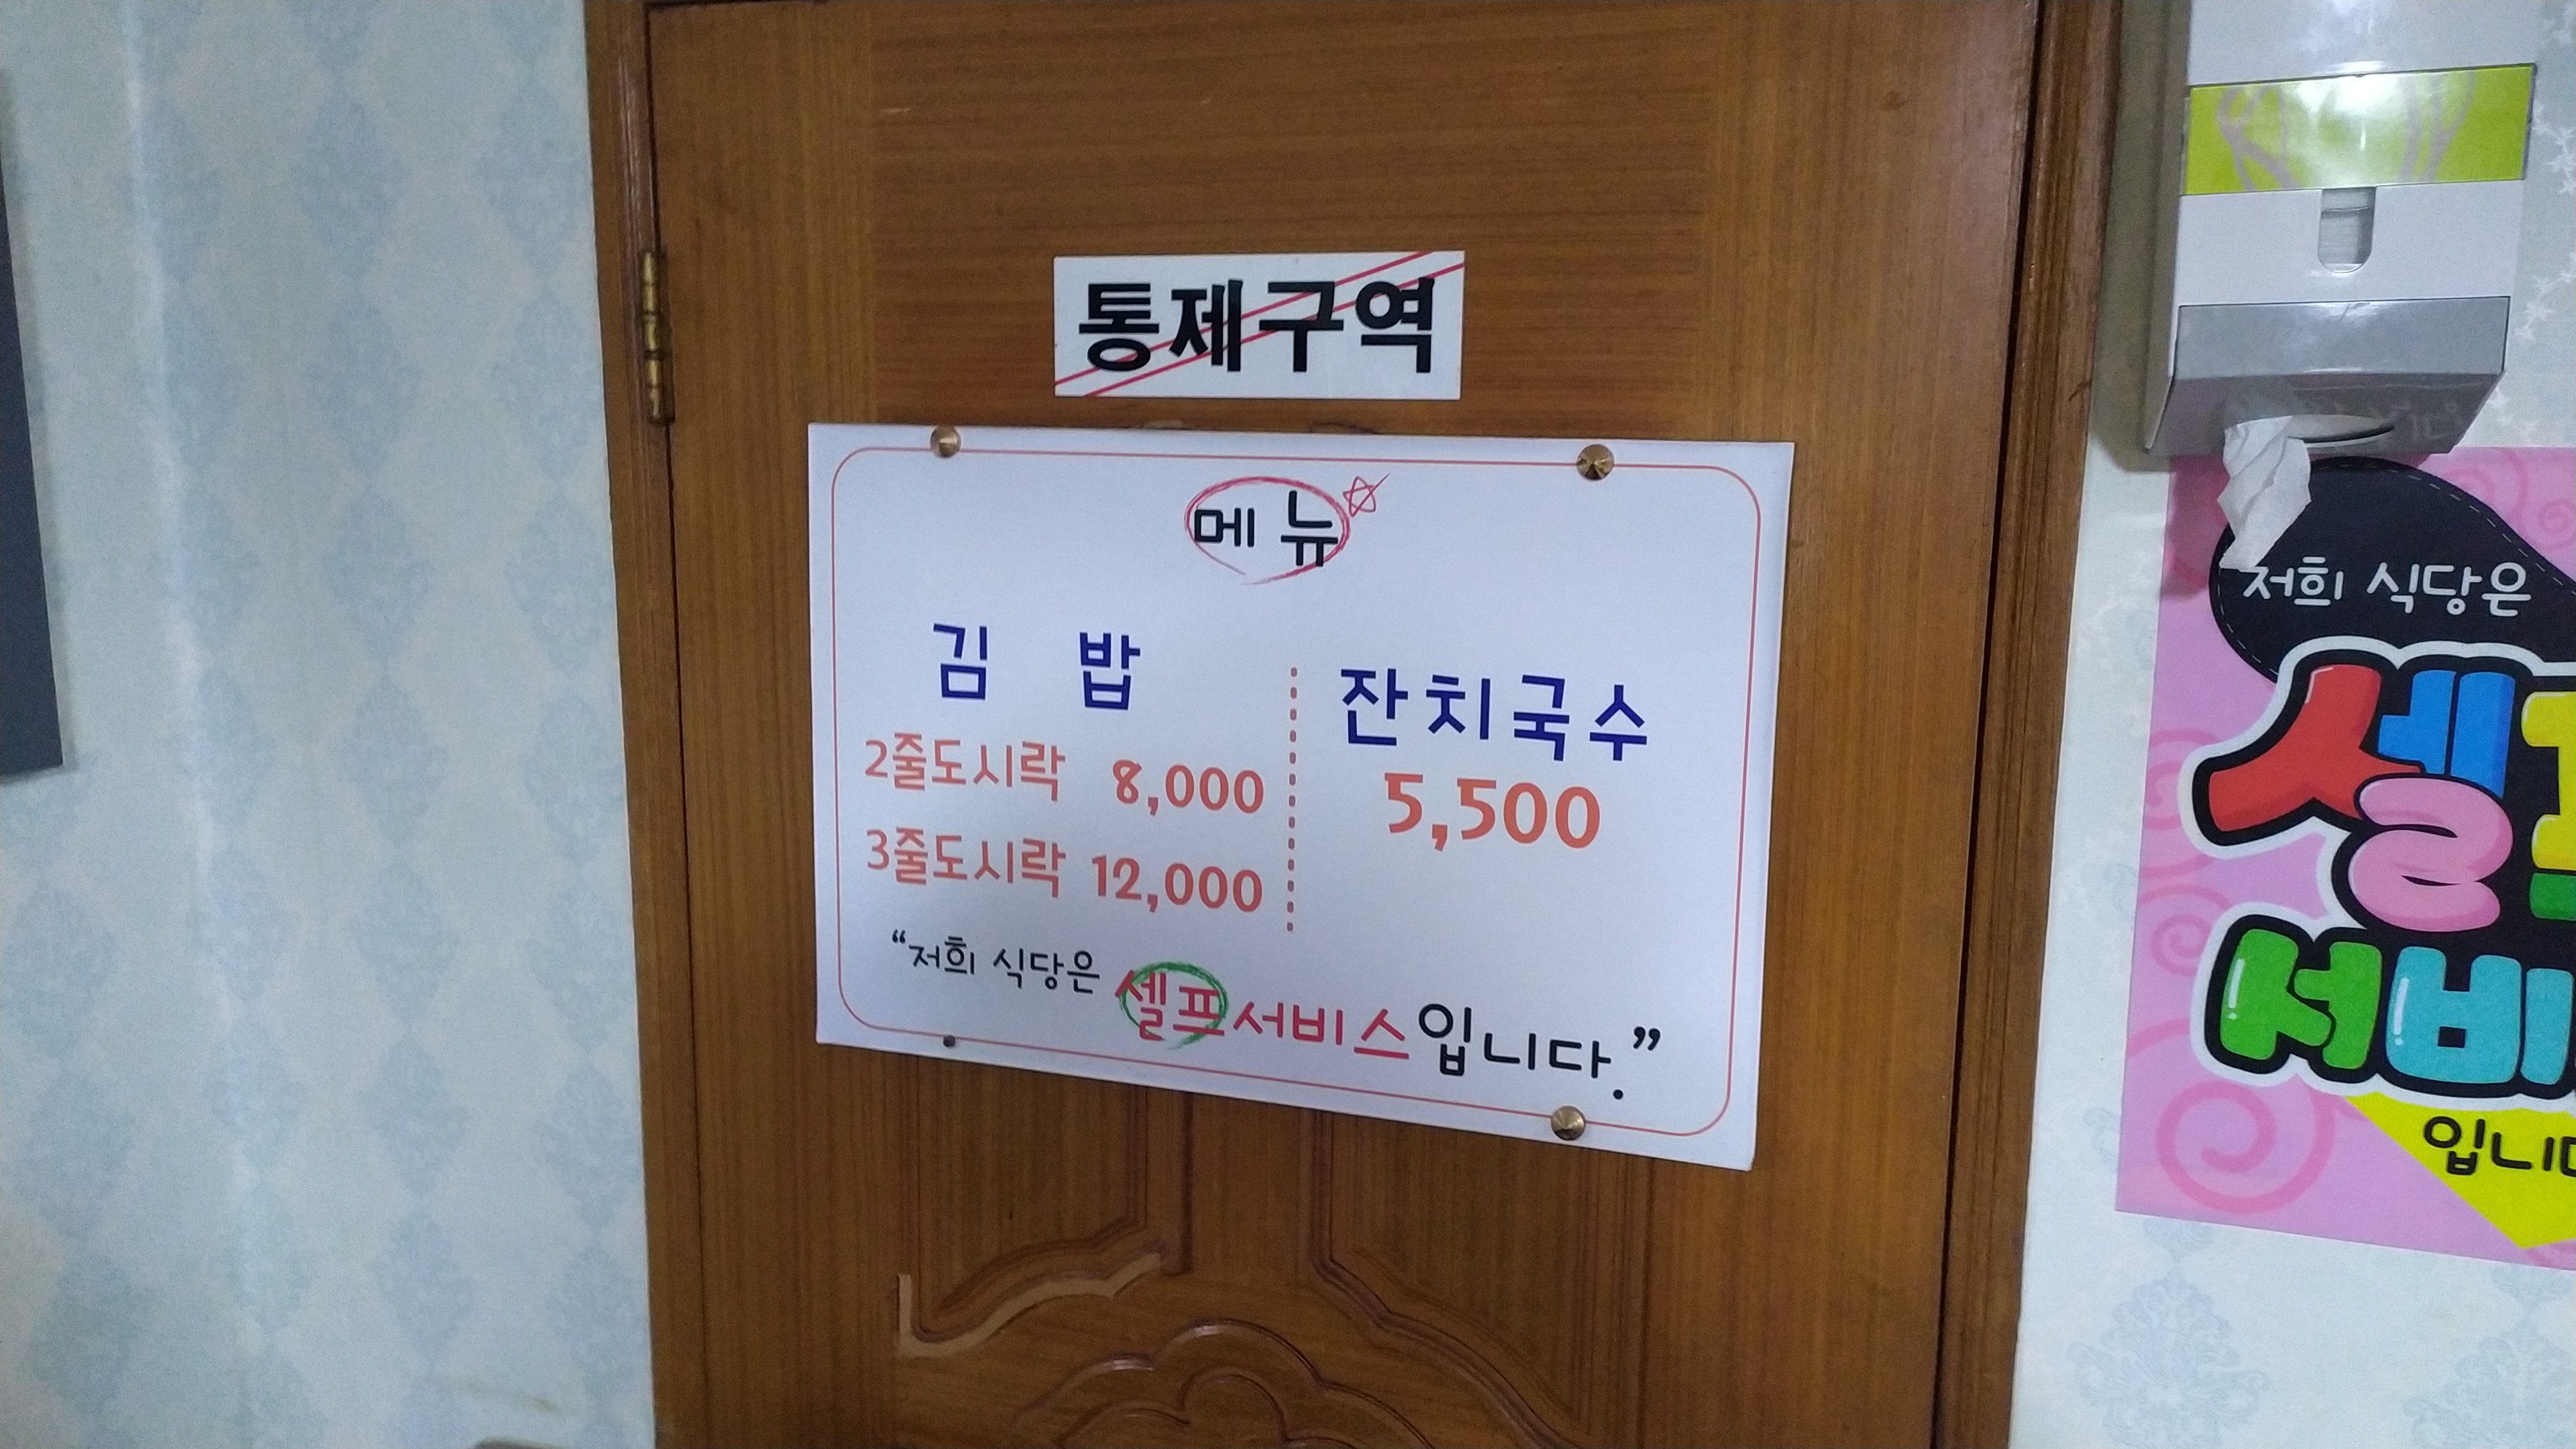 통제구역
메 뉴
김 밥
2줄도시락 8,000
3줄도시락 12,000
잔치국수
5,500
“저희 식당은 셀프서비스입니다.”
저희 식당은
셀
서비
입니